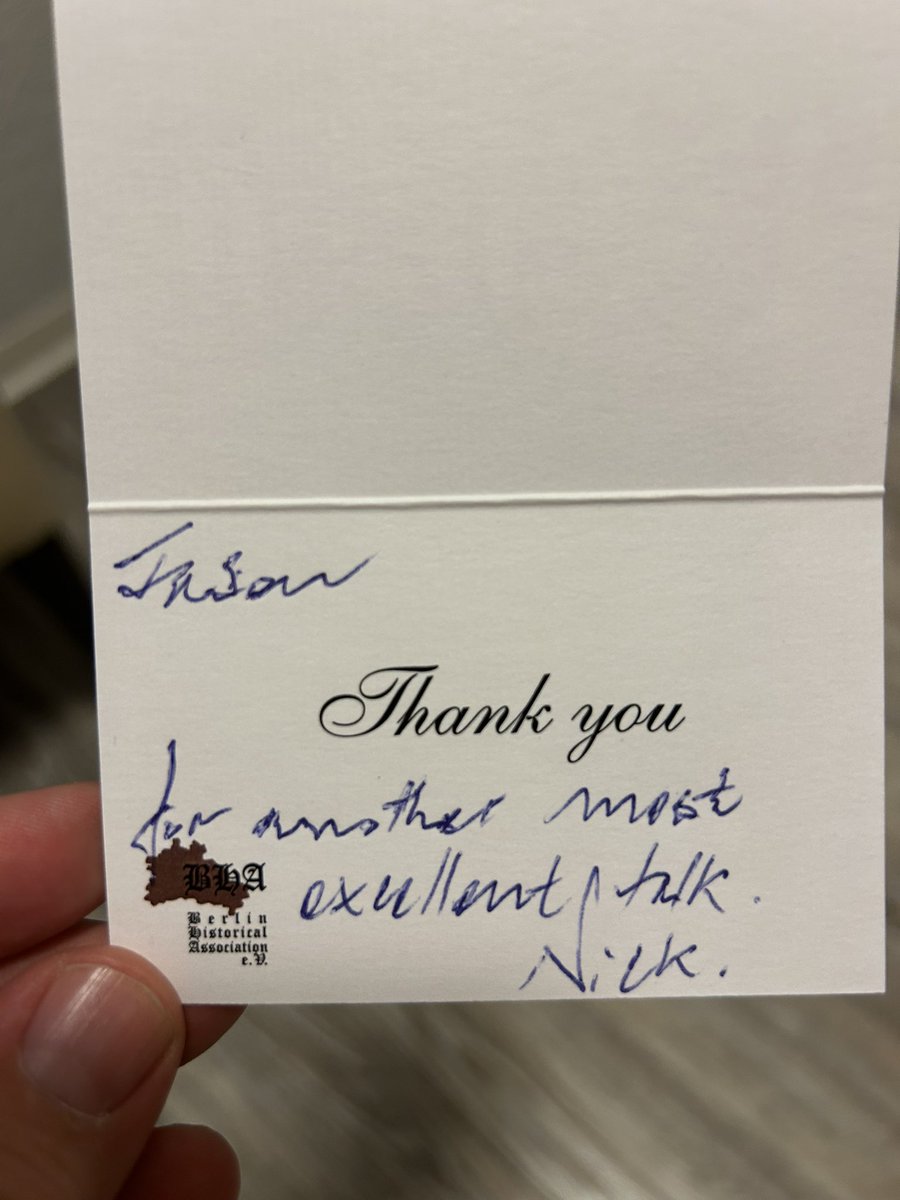 Jason
Thank you
for another most
excellent talk.
Nick.
BHA
Berlin
Historical
Association
e.V.